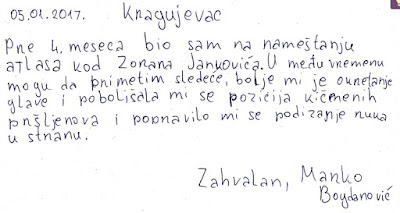 05.01.2017. Kragujevac
Pre 4. meseca bio sam na nameštanju
atlasa kod Zorana Jankovića. U među vremenu
mogu da primetim sledeće, bolje mi je okretanje
glave i pobolišala mi se pozicija kičmenih
pršljenova i popravilo mi se podizanje ruka
u stranu.
Zahvalan, Marko
Bogdanović